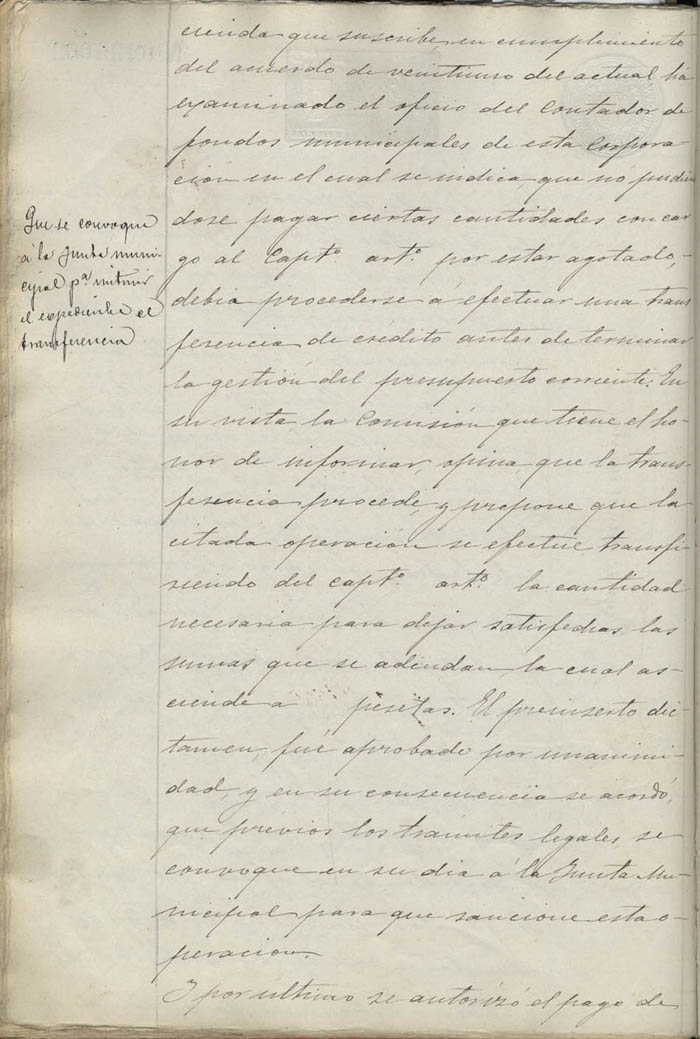 cienda que suscribe, en cumplimiento
del acuerdo de veintiuno del actual há
examinado el oficio del Contador de
fondos municipales de esta Corpora-
ción en el cual se indica, que no pudien
dose pagar ciertas cantidades con car-
go al Capt.º art.º por estar agotado,
debia procederse á efectuar una trans
ferencia de crédito antes de terminar
la gestión del presupuesto corriente. En
su vista, la Comisión que tiene el ho-
nor de informar, opina, que la trans-
ferencia procede, y propone que la
citada operación se efectue transfi-
riendo del capt.º art.º la cantidad
necesaria para dejar satisfechas las
sumas que se adeudan, la cual as-
ciende a pesetas. El preinserto dic-
tamen, fué aprobado por unanimi-
dad, y en su consecuencia se acordó,
que prévios los trámites legales, se
convoque en su dia á la Junta Mu-
nicipal para que sancione esta o-
peracion.
Y por último se autorizó el pago de
Que se convoque
á la Junta muni-
cipal p.ª
el expediente de
transferencia